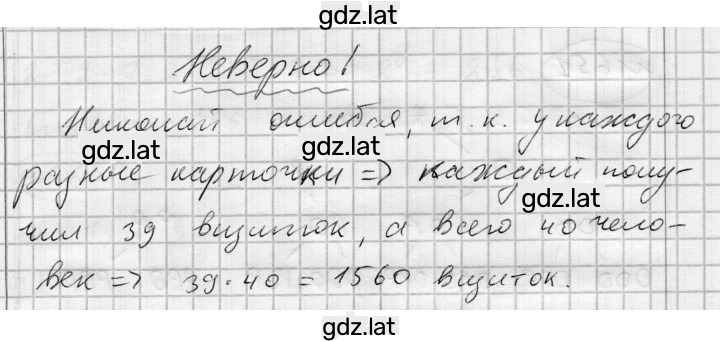 gdz.lat
Неверно!
Николай ошибся, т.к. у каждого
gdz.lat gdz.lat
разные карточки => каждый полу-
gdz.lat
чил 39 визиток, а всего 40 чело-
век => 39·40 = 1560 визиток.
gdz.lat